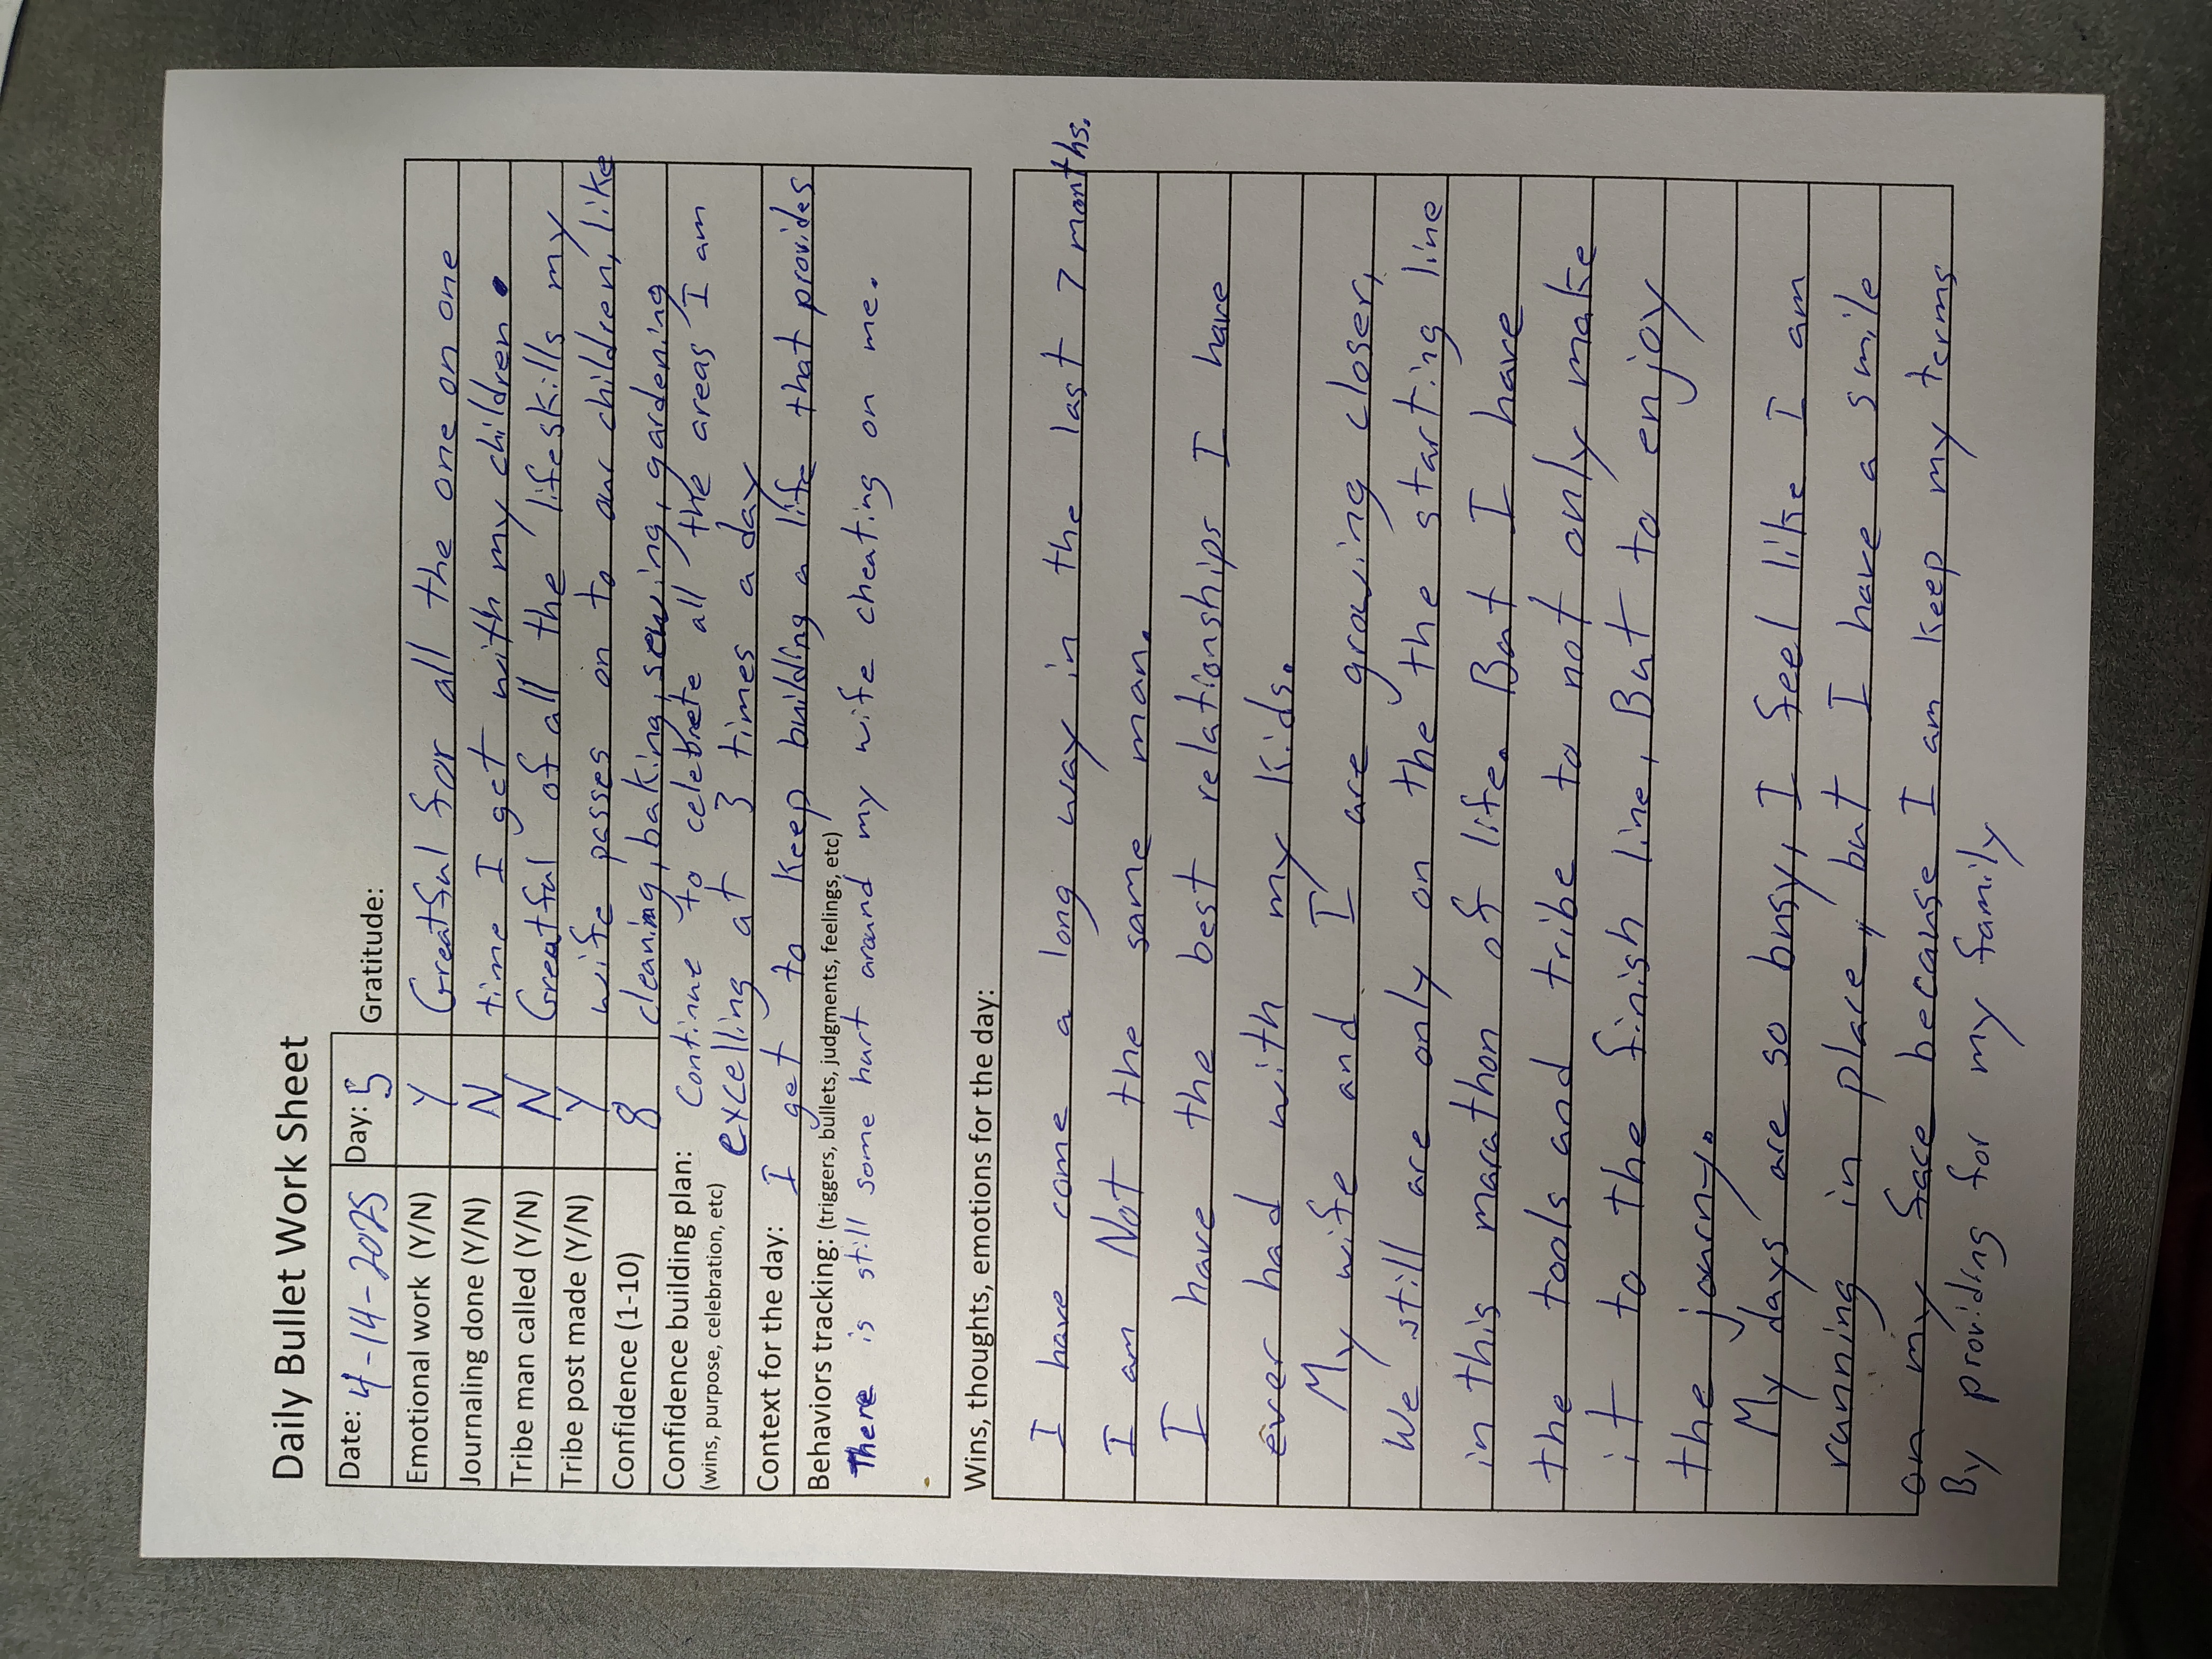 Daily Bullet Work Sheet
Date: 4-14-2025 Day: 5 Gratitude:
Emotional work (Y/N) Y Greatful for all the one on one
Journaling done (Y/N) N time I get with my children.
Tribe man called (Y/N) N Greatful of all the lifeskills my
Tribe post made (Y/N) Y wife passes on to our children, like
Confidence (1-10) 8 cleaning, baking, sewing, gardening
Confidence building plan: Continue to celebrete all the areas I am
(wins, purpose, celebration, etc) excelling at 3 times a day
Context for the day: I get to keep building a life that provides
Behaviors tracking: (triggers, bullets, judgments, feelings, etc)
There is still some hurt around my wife cheating on me.
Wins, thoughts, emotions for the day:
I have come a long way in the last 7 months.
I am Not the same man.
I have the best relationships I have
ever had with my kids.
My wife and I are growing closer,
We still are only on the the starting line
in this marathon of life. But I have
the tools and tribe to not only make
it to the finish line, But to enjoy
the journy.
My days are so busy, I feel like I am
running in place, but I have a smile
on my face because I am keep my terms
By providing for my family